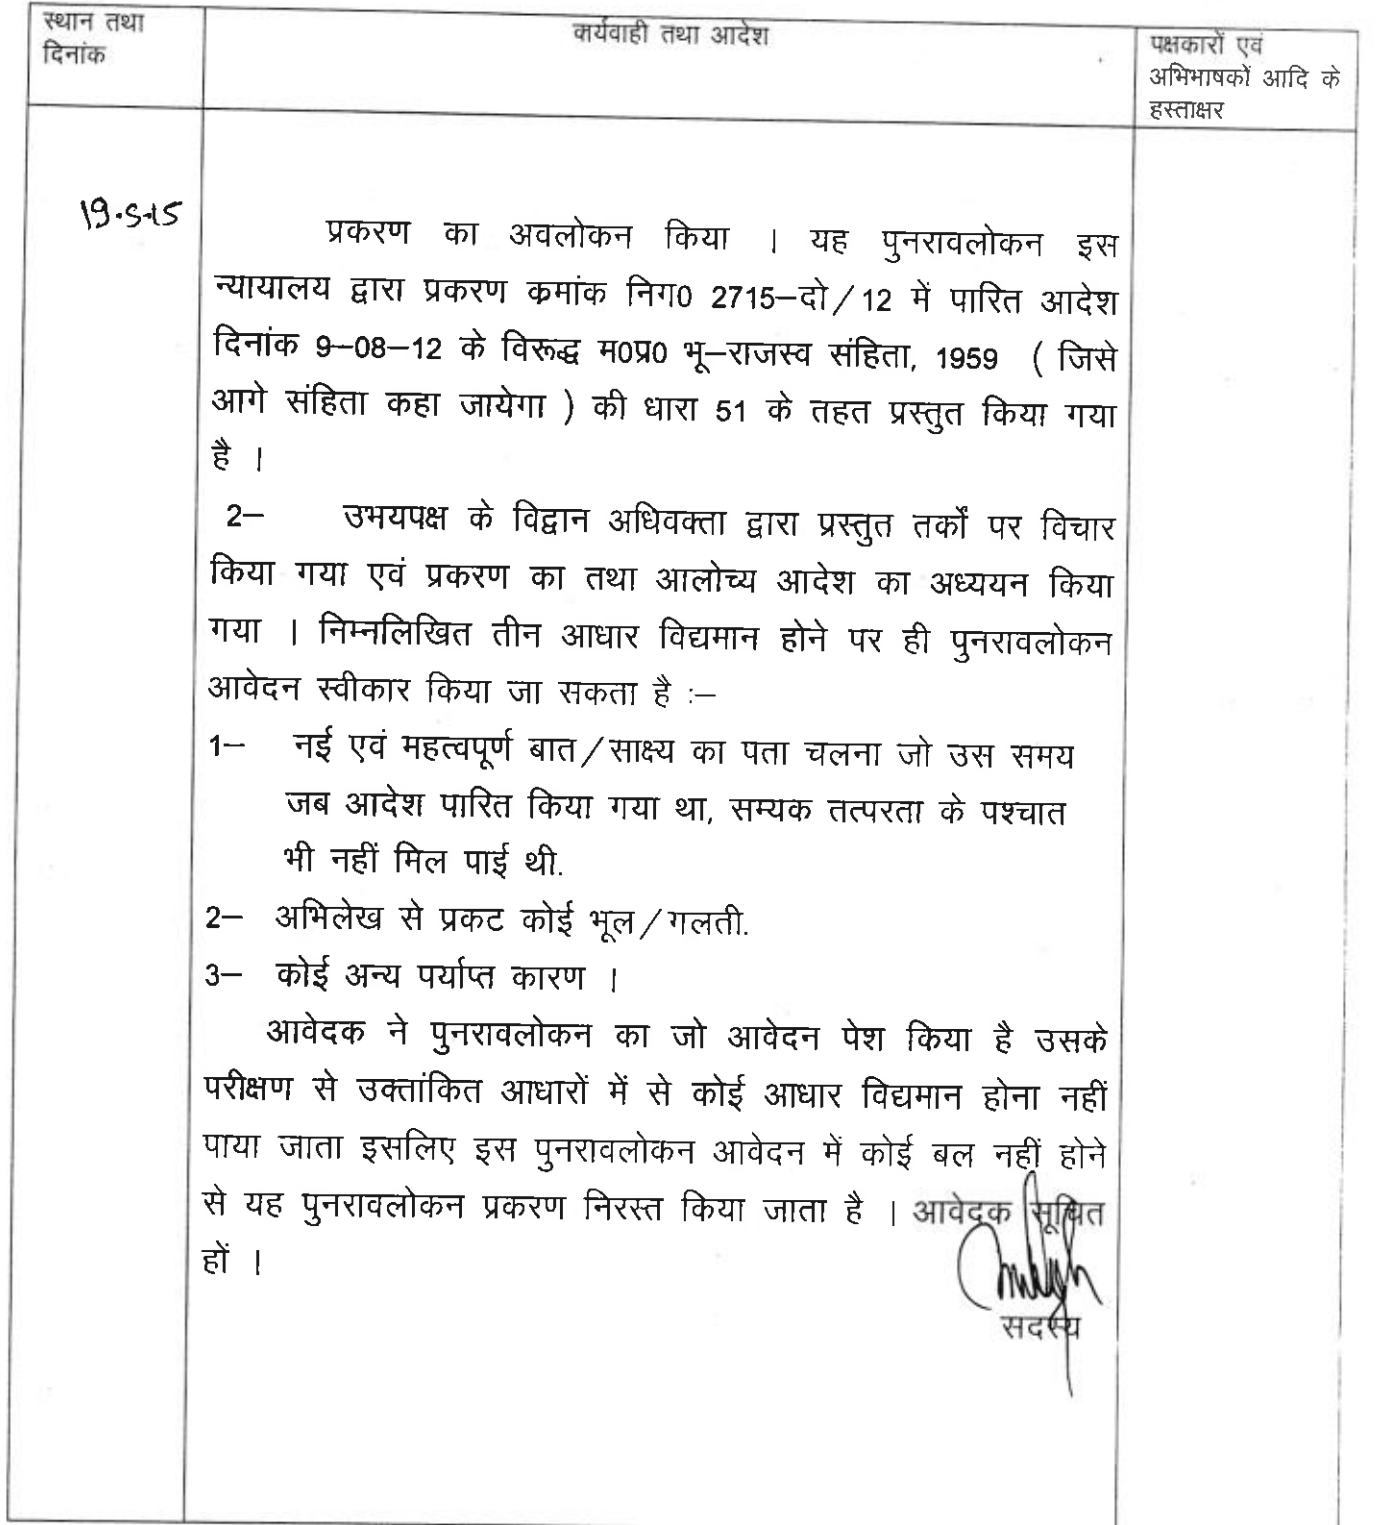 स्थान तथा
दिनांक
कार्यवाही तथा आदेश
पक्षकारों एवं
अभिभाषकों आदि के
हस्ताक्षर
19-5-15
प्रकरण का अवलोकन किया । यह पुनरावलोकन इस
न्यायालय द्वारा प्रकरण कमांक निग0 2715–दो/12 में पारित आदेश
दिनांक 9–08–12 के विरूद्ध म0प्र0 भू–राजस्व संहिता, 1959 ( जिसे
आगे संहिता कहा जायेगा ) की धारा 51 के तहत प्रस्तुत किया गया
है ।
2– उभयपक्ष के विद्वान अधिवक्ता द्वारा प्रस्तुत तर्कों पर विचार
किया गया एवं प्रकरण का तथा आलोच्य आदेश का अध्ययन किया
गया । निम्नलिखित तीन आधार विद्यमान होने पर ही पुनरावलोकन
आवेदन स्वीकार किया जा सकता है :–
1– नई एवं महत्वपूर्ण बात/साक्ष्य का पता चलना जो उस समय
जब आदेश पारित किया गया था, सम्यक तत्परता के पश्चात
भी नहीं मिल पाई थी.
2– अभिलेख से प्रकट कोई भूल/गलती.
3– कोई अन्य पर्याप्त कारण ।
आवेदक ने पुनरावलोकन का जो आवेदन पेश किया है उसके
परीक्षण से उक्तांकित आधारों में से कोई आधार विद्यमान होना नहीं
पाया जाता इसलिए इस पुनरावलोकन आवेदन में कोई बल नहीं होने
से यह पुनरावलोकन प्रकरण निरस्त किया जाता है । आवेदक सूचित
हों ।
सदस्य